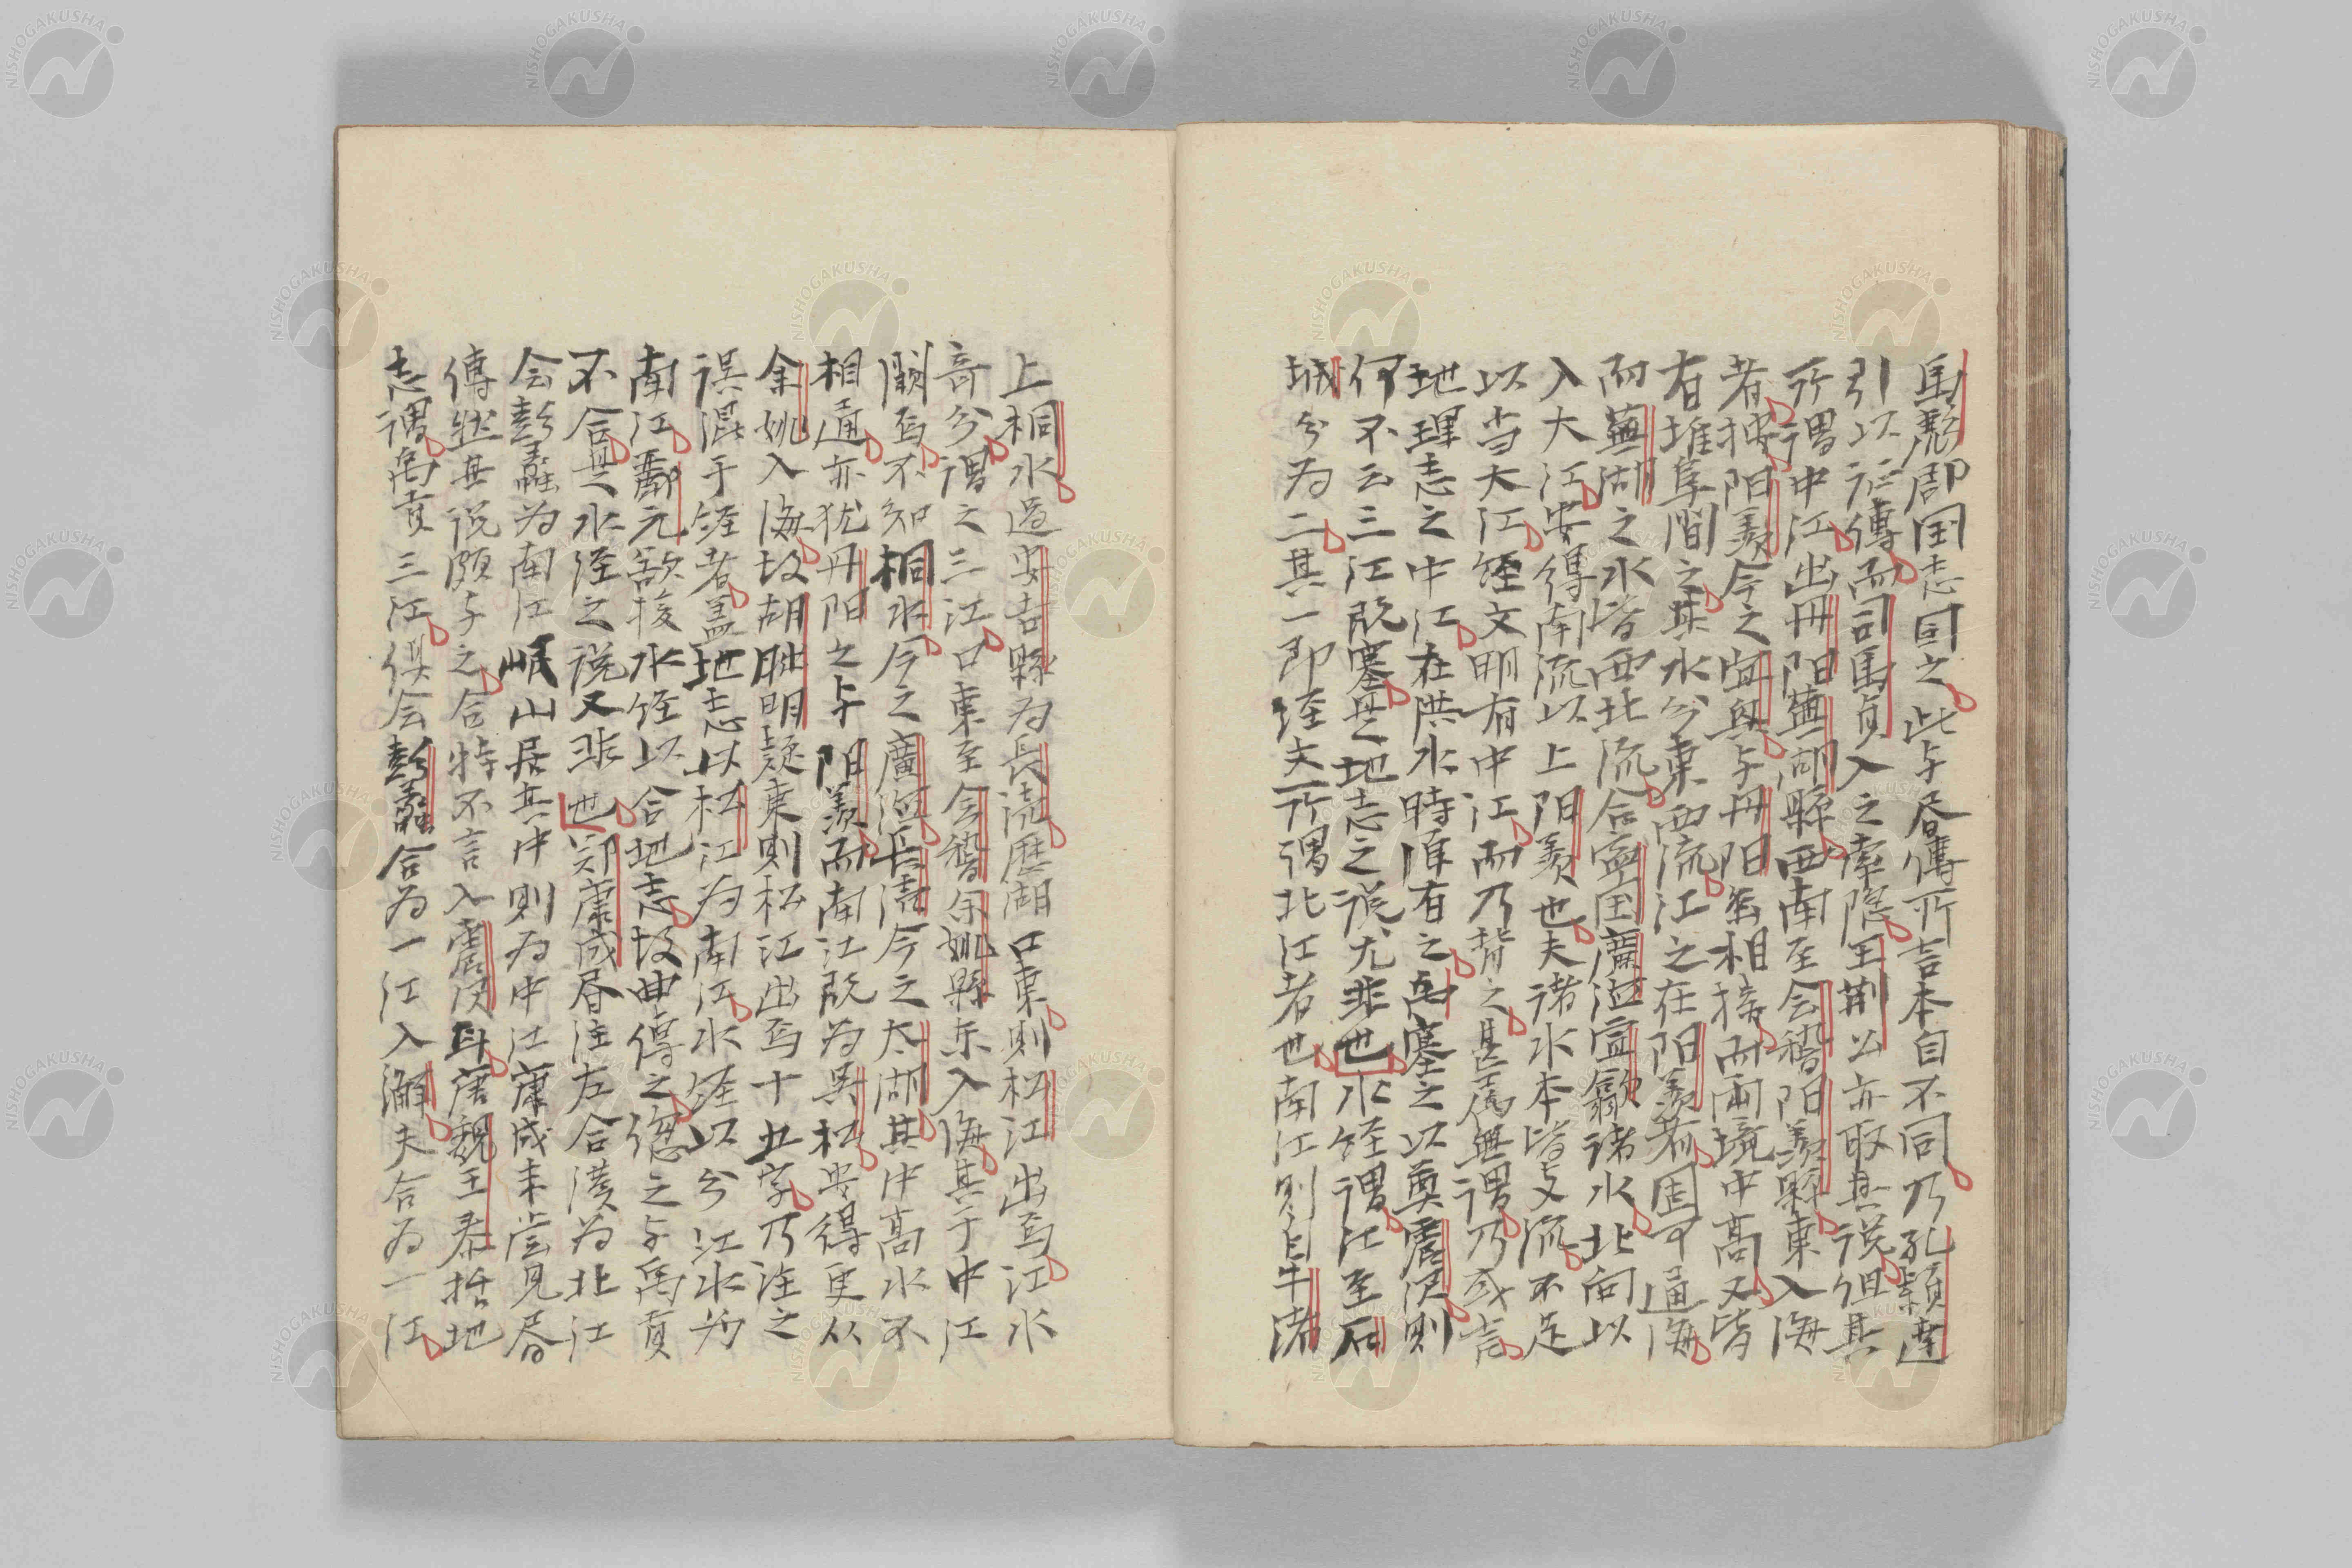 馬彪郡国志同之此与㫺傳所言本自不同乃孔穎達
引以証傳而司馬貞入之索隠王荆公亦取其説但其
所謂中江出丹阳蕪湖縣西南至会稽阳羨縣東入海
者按阳羨今之宜興与丹阳虽相接而兩境中髙又皆
有堆阜间之其水分東西流江之在阳羨者固可通海
而蕪湖之水皆西北流合寧国廣徳宣歙诸水北向以
入大江安得南流以上阳羨也夫诸水本皆支流不足
以当大江経文明有中江而乃背之甚為無謂乃或言
地理志之中江在洪水時原有之禹塞之以奠震沢則
何不云三江既塞是地志之说尤非也水経謂江至石
城分为二其一即経夫所谓北江者也南江則自牛渚
上桐水過安吉縣为長瀆歴湖口東則松江出焉江水
竒分谓之三江口東至会稽余姚縣东入海其于中江
闕焉不知桐水今之廣徳長瀆今之太湖其中高水不
相通亦犹丹阳之与阳羨而南江既为吳松安得更从
余姚入海故胡朏明疑東則松江出焉十五字乃注之
误混于経者蓋地志以松江为南江水経以分江水为
南江酈元欲挍水経以合地志故曲傅之總之与禹貢
不合是水経之説又非也郑康成㫺注左合漢为北江
会彭蠡为南江岷山居其中則为中江康成未尝見㫺
傳然其说頗与之合特不言入震沢耳唐魏王泰括地
志谓禹貢三江俱会彭蠡合为一江入海夫合为一江